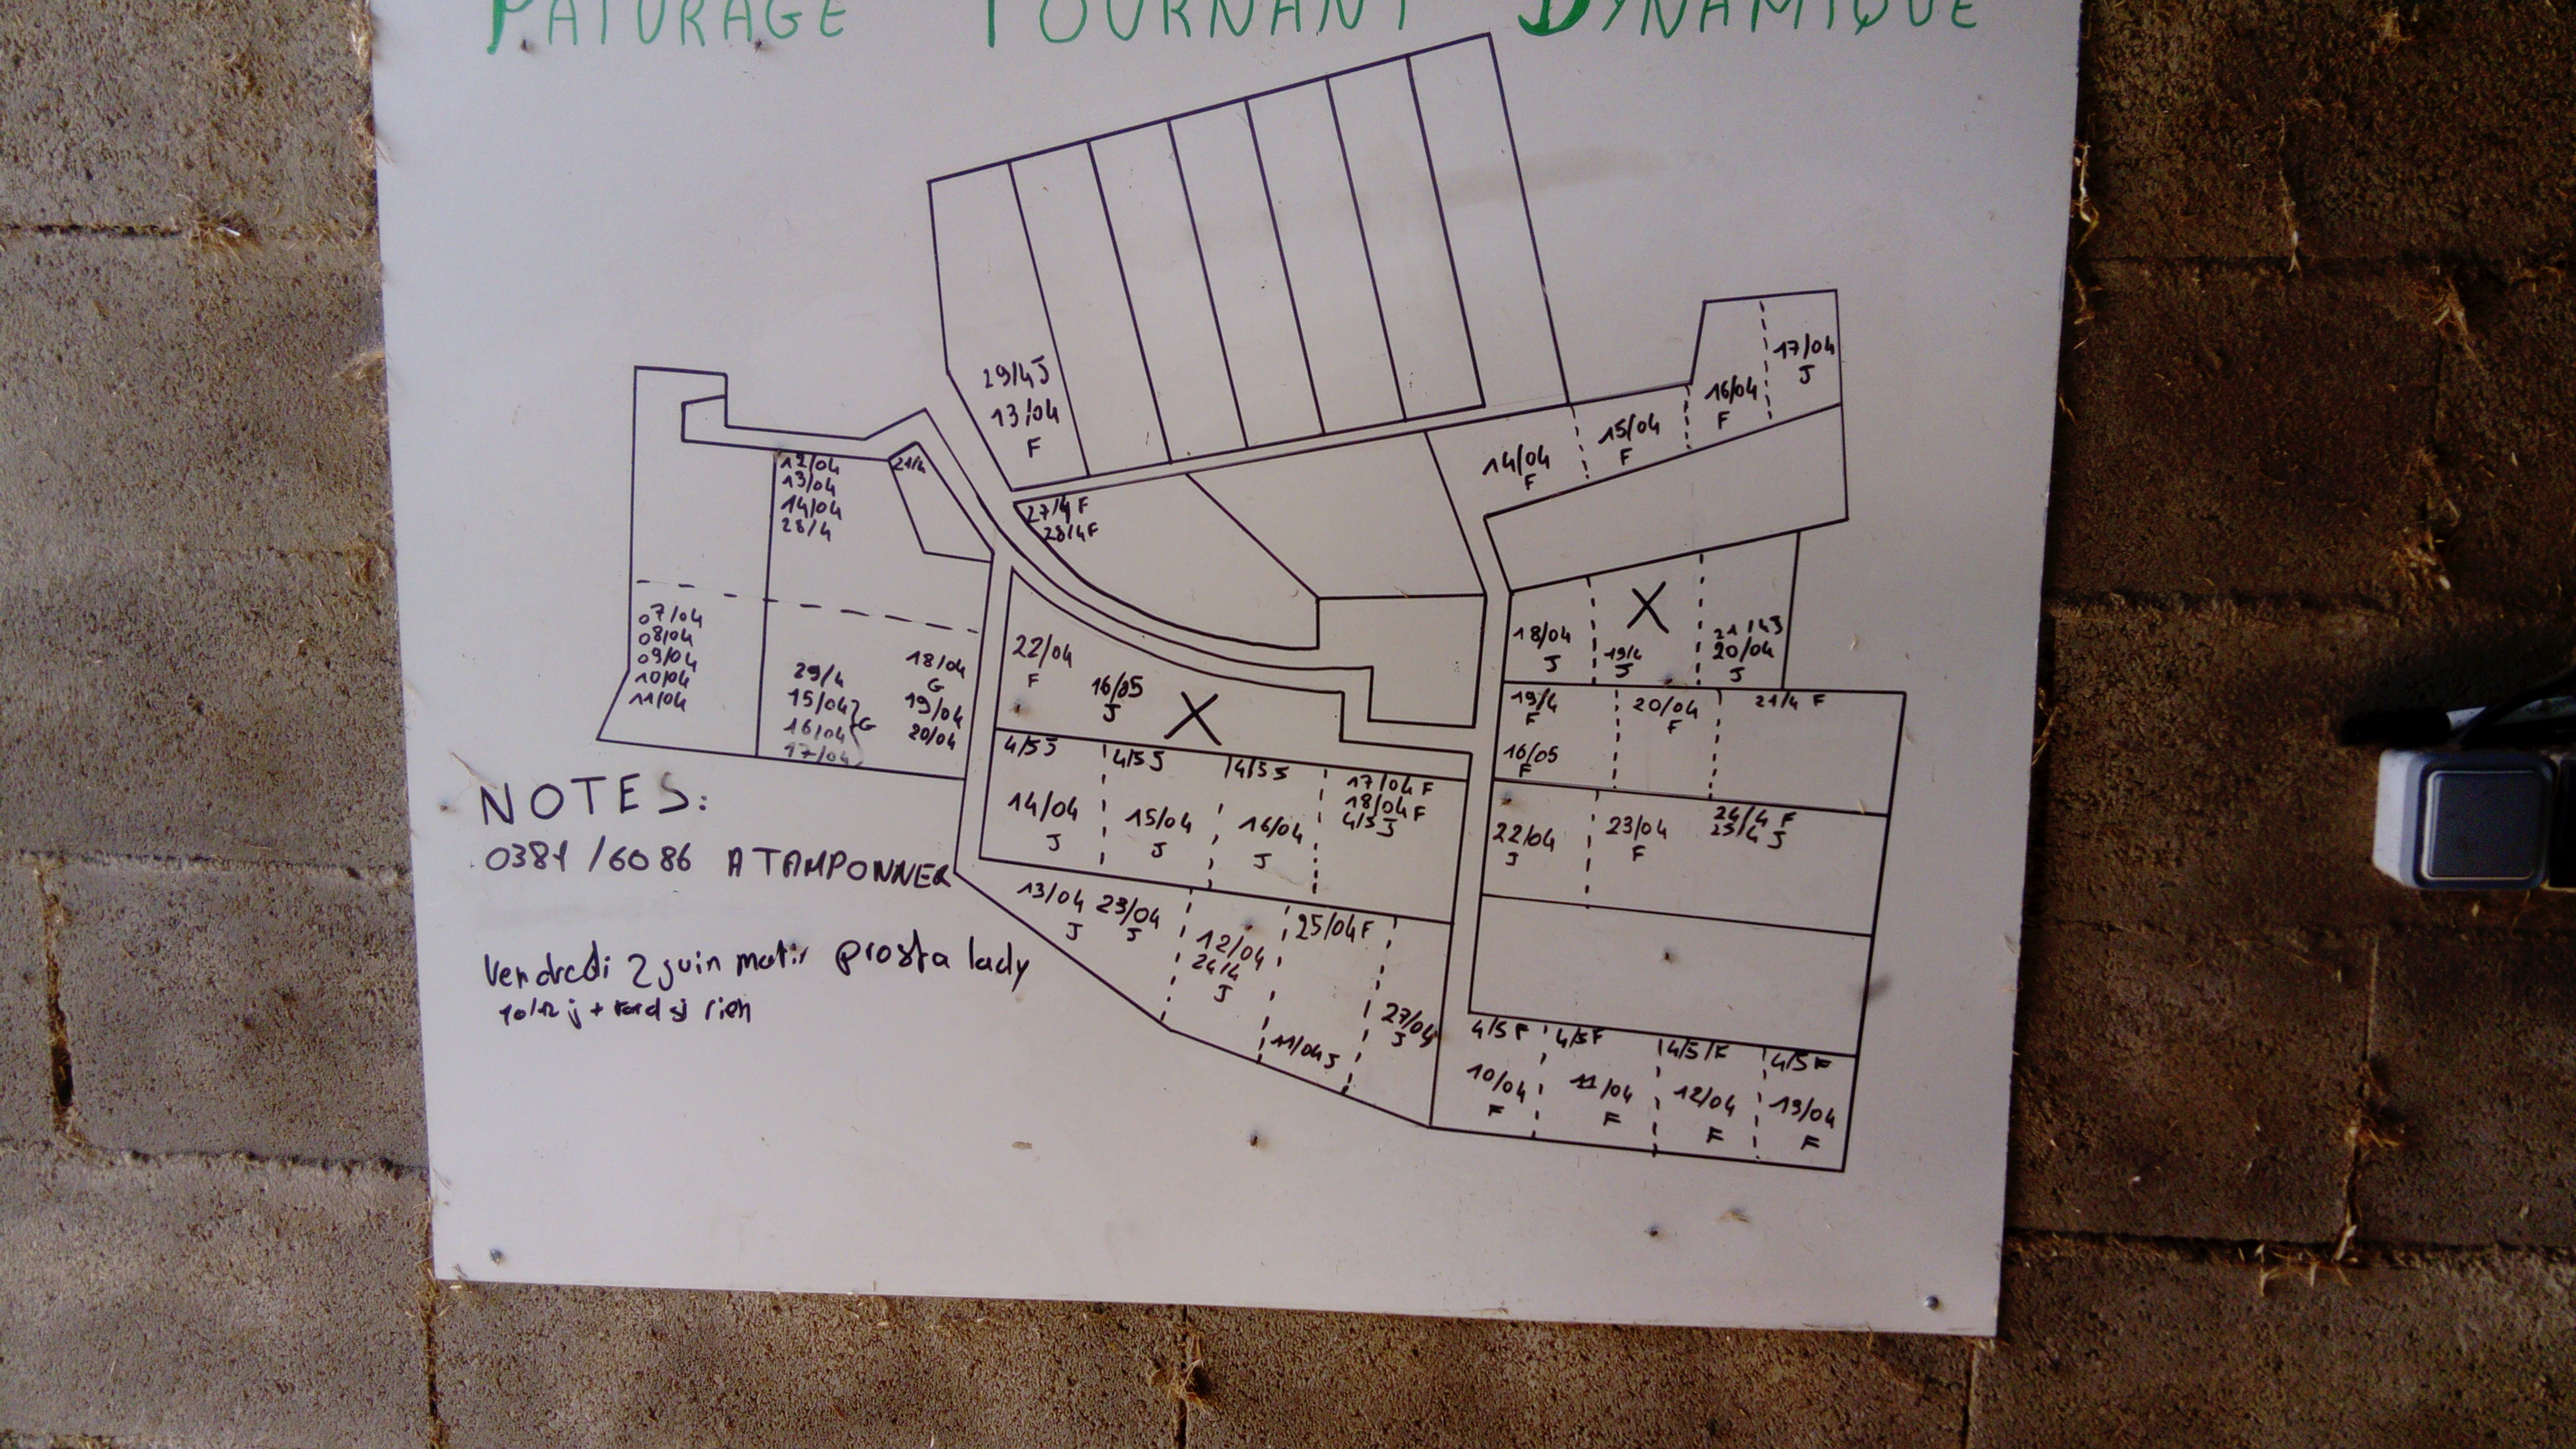 PATURAGE TOURNANT DYNAMIQUE
29/4 J
13/04
F
17/04
J
16/04
F
15/04
F
14/04
F
12/04
13/04
14/04
28/4
21/4
27/4 F
28/4 F
07/04
08/04
09/04
10/04
11/04
29/4
15/04
16/04
17/04
G
18/04
G
19/04
20/04
22/04
F
16/05
J
X
18/04
J
X
19/4
J
21/4 J
20/04
J
19/4
F
16/05
F
20/04
F
21/4 F
4/5 J
14/04
J
4/5 J
15/04
J
4/5 J
16/04
J
17/04 F
18/04 F
4/5 J
22/04
J
23/04
F
24/4 F
25/4 J
NOTES:
0381 / 6086 A TAMPONNER
13/04
J
23/04
J
12/04
24/4
J
25/04 F
11/04 J
27/04
J
Vendredi 2 juin matin prosta lady
10/12 j + tard si rien
4/5 F
10/04
F
4/5 F
11/04
F
4/5 F
12/04
F
4/5 F
13/04
F